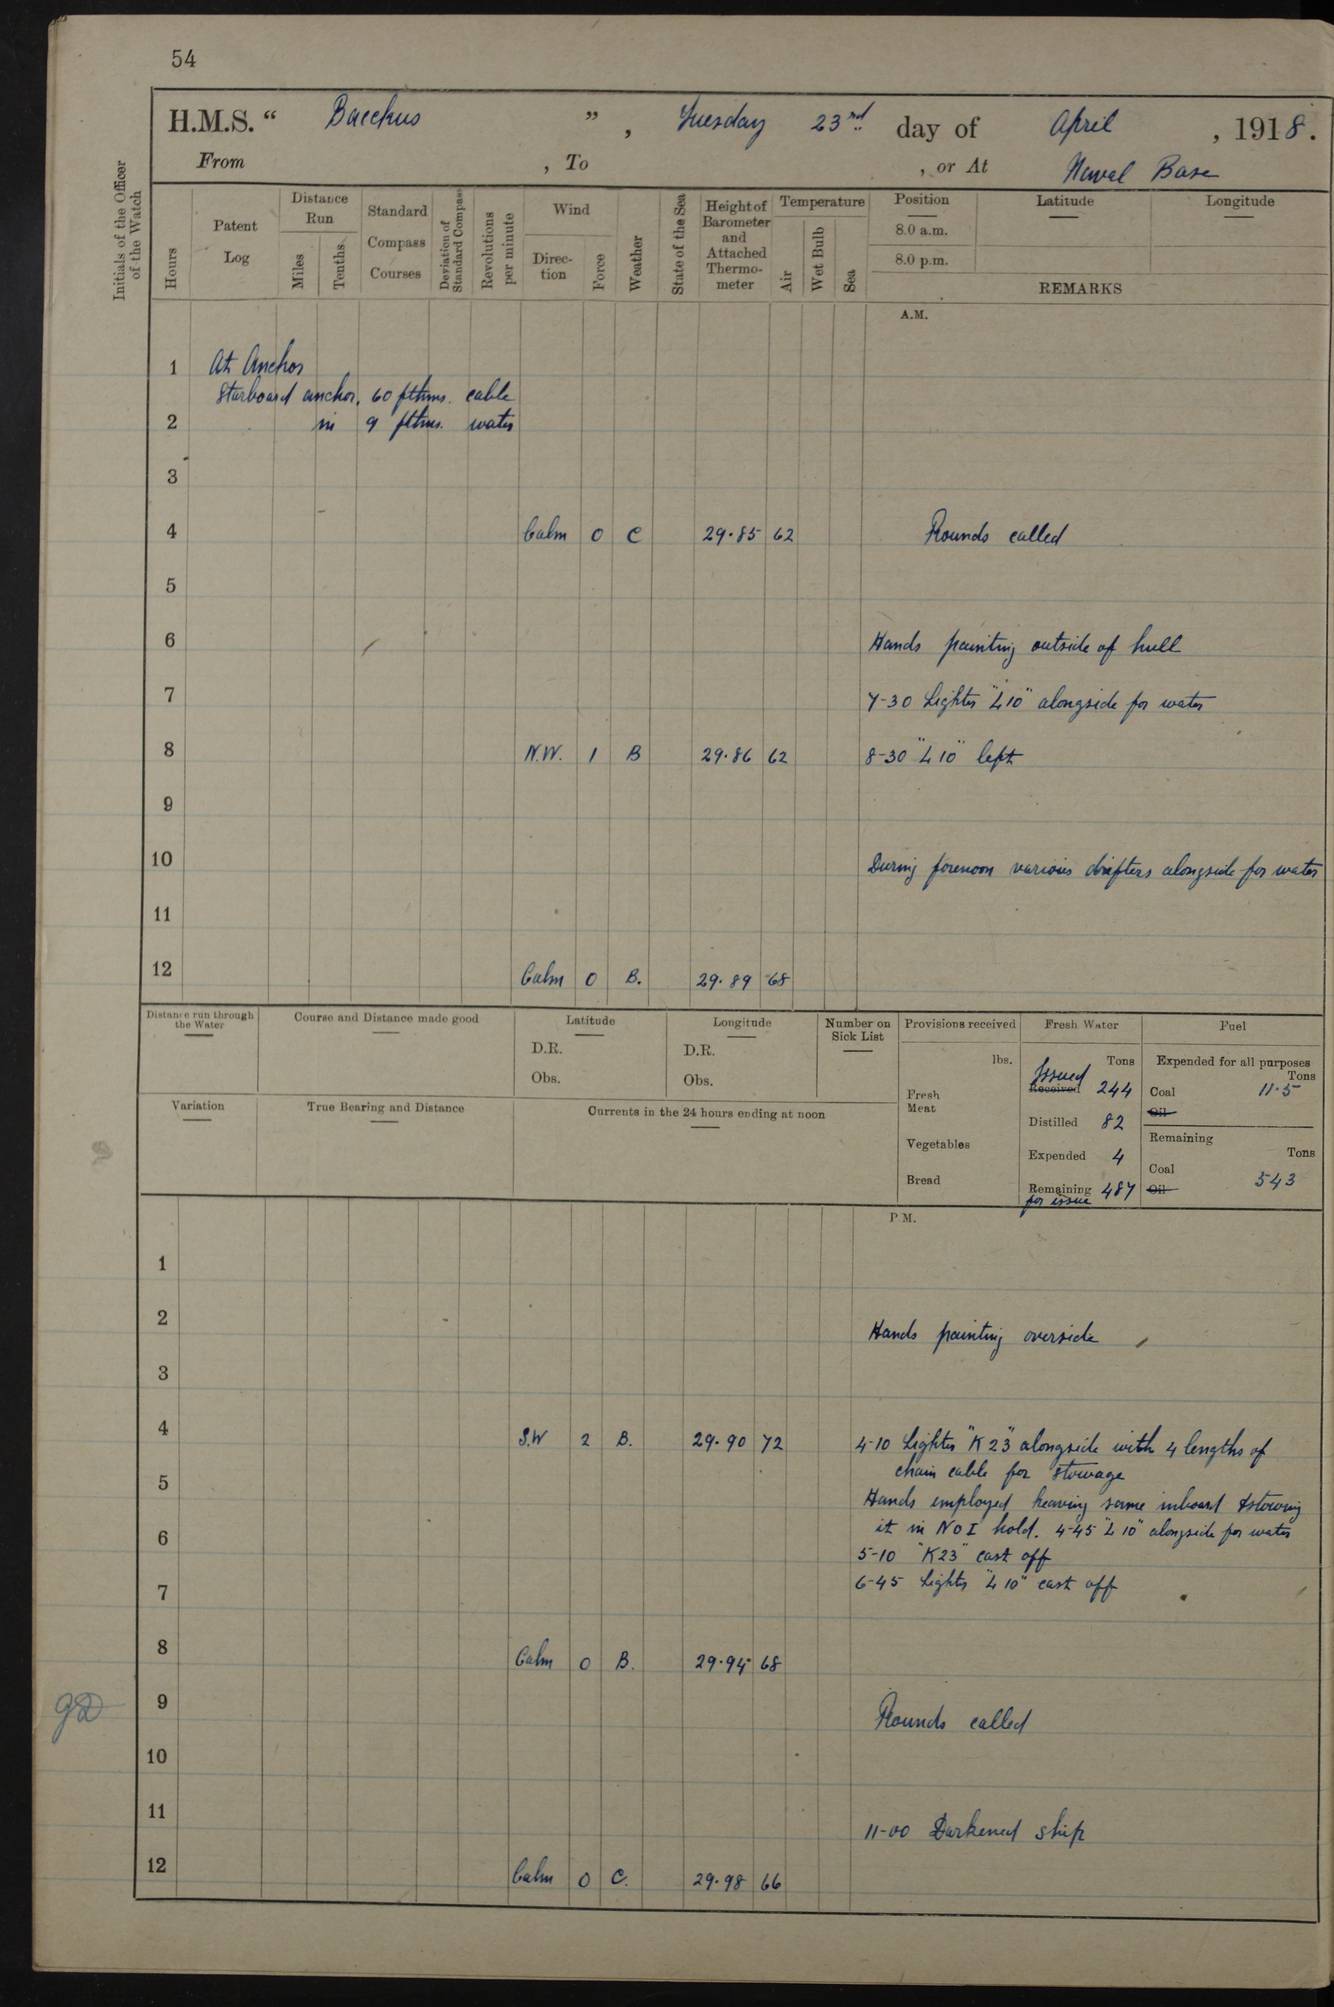 54
H.M.S. “ Bacchus ” , Tuesday 23rd day of April , 1918.
From , To , or At Naval Base
Initials of the Officer of the Watch
Hours
Patent Log
Distance Run
Miles
Tenths
Standard Compass Courses
Deviation of Standard Compass
Revolutions per minute
Wind
Direction
Force
Weather
State of the Sea
Height of Barometer and Attached Thermometer
Temperature
Air
Wet Bulb
Sea
Position Latitude Longitude
8.0 a.m.
8.0 p.m.
REMARKS
A.M.
1 At Anchor
Starboard anchor, 60 fthms. cable
2 in 9 fthms. water
3
4 Calm 0 C 29.85 62 Rounds called
5
6 Hands painting outside of hull
7 7-30 Lighter "L10" alongside for water
8 N.W. 1 B 29.86 62 8-30 "L10" left
9
10 During forenoon various drifters alongside for water
11
12 Calm 0 B. 29.89 68
Distance run through the Water
Course and Distance made good
Latitude
D.R.
Obs.
Longitude
D.R.
Obs.
Number on Sick List
Provisions received
lbs.
Fresh Meat
Vegetables
Bread
Fresh Water
Tons
Issued
Received 244
Distilled 82
Expended 4
Remaining 487
for issue
Fuel
Expended for all purposes
Tons
Coal 11.5
Oil
Remaining
Tons
Coal 543
Oil
Variation
True Bearing and Distance
Currents in the 24 hours ending at noon
P.M.
1
2 Hands painting overside
3
4 S.W 2 B. 29.90 72 4-10 Lighter "K23" alongside with 4 lengths of
chain cable for stowage
5 Hands employed heaving same inboard & stowing
6 it in No I hold. 4-45 "L10" alongside for water
5-10 "K23" cast off
7 6-45 Lighter "L10" cast off
8 Calm 0 B. 29.94 68
9 Rounds called
10
11 11-00 Darkened ship
12 Calm 0 C. 29.98 66